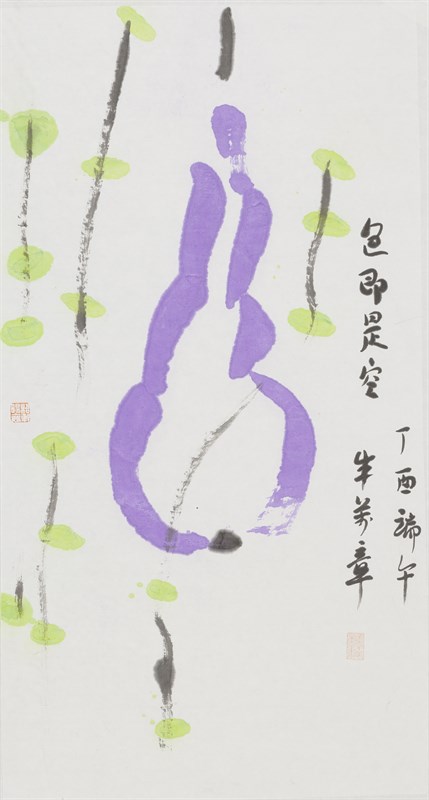 色即是空
丁酉端午
朱萬章